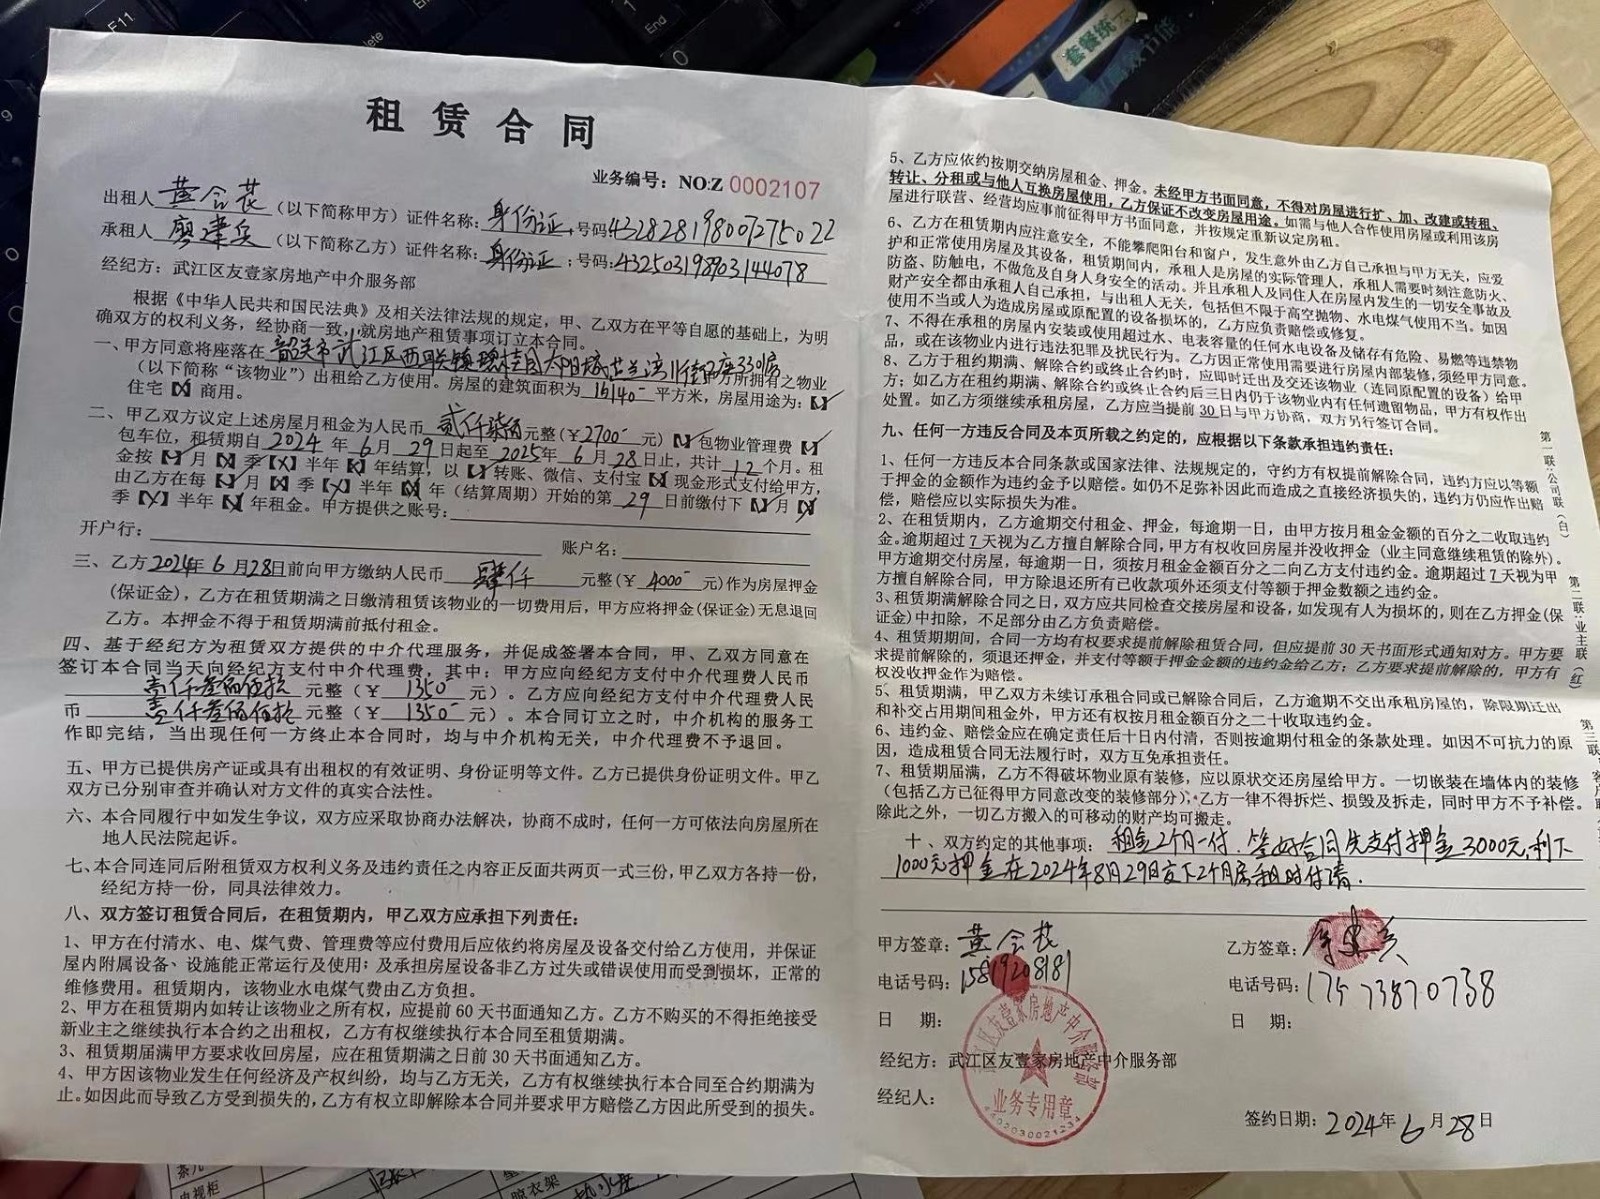 租赁合同
业务编号：NO:Z 0002107
出租人 黄会花 （以下简称甲方）证件名称：身份证，号码432828198007275022
承租人 廖建兵 （以下简称乙方）证件名称：身份证；号码：432503198903144078
经纪方：武江区友壹家房地产中介服务部
根据《中华人民共和国民法典》及相关法律法规的规定，甲、乙双方在平等自愿的基础上，为明
确双方的权利义务，经协商一致，就房地产租赁事项订立本合同。
一、甲方同意将座落在 韶关市武江区西联镇碧桂园太阳城芷兰湾 街 座3301房 方所拥有之物业
（以下简称“该物业”）出租给乙方使用。房屋的建筑面积为 平方米，房屋用途为：【✓】
住宅【✗】商用。
二、甲乙双方议定上述房屋月租金为人民币 贰仟柒佰 元整（￥2700 元）【✗】包物业管理费【✓】
包车位，租赁期自 2024 年 6 月 29 日起至 2025 年 6 月 28 日止，共计 12 个月。租
金按【✓】月【✗】季【✗】半年【✗】年结算，以【✓】转账、微信、支付宝【✗】现金形式支付给甲方，
由乙方在每【✓】月【✗】季【✗】半年【✗】年（结算周期）开始的第 29 日前缴付下【✓】月【✗】
季【✗】半年【✗】年租金。甲方提供之账号：
开户行： 账户名：
三、乙方 2024年 6 月 28日前向甲方缴纳人民币 肆仟 元整（￥ 4000 元）作为房屋押金
（保证金），乙方在租赁期满之日缴清租赁该物业的一切费用后，甲方应将押金(保证金)无息退回
乙方。本押金不得于租赁期满前抵付租金。
四、基于经纪方为租赁双方提供的中介代理服务，并促成签署本合同，甲、乙双方同意在
签订本合同当天向经纪方支付中介代理费，其中：甲方应向经纪方支付中介代理费人民币
壹仟叁佰伍拾 元整（￥ 1350 元）。乙方应向经纪方支付中介代理费人民
币 壹仟叁佰伍拾 元整（￥ 1350 元）。本合同订立之时，中介机构的服务工
作即完结，当出现任何一方终止本合同时，均与中介机构无关，中介代理费不予退回。
五、甲方已提供房产证或具有出租权的有效证明、身份证明等文件。乙方已提供身份证明文件。甲乙
双方已分别审查并确认对方文件的真实合法性。
六、本合同履行中如发生争议，双方应采取协商办法解决，协商不成时，任何一方可依法向房屋所在
地人民法院起诉。
七、本合同连同后附租赁双方权利义务及违约责任之内容正反面共两页一式三份，甲乙双方各持一份，
经纪方持一份，同具法律效力。
八、双方签订租赁合同后，在租赁期内，甲乙双方应承担下列责任：
1、甲方在付清水、电、煤气费、管理费等应付费用后应依约将房屋及设备交付给乙方使用，并保证
屋内附属设备、设施能正常运行及使用；及承担房屋设备非乙方过失或错误使用而受到损坏，正常的
维修费用。租赁期内，该物业水电煤气费由乙方负担。
2、甲方在租赁期内如转让该物业之所有权，应提前60天书面通知乙方。乙方不购买的不得拒绝接受
新业主之继续执行本合约之出租权，乙方有权继续执行本合同至租赁期满。
3、租赁期届满甲方要求收回房屋，应在租赁期满之日前30天书面通知乙方。
4、甲方因该物业发生任何经济及产权纠纷，均与乙方无关，乙方有权继续执行本合同至合约期满为
止。如因此而导致乙方受到损失的，乙方有权立即解除本合同并要求甲方赔偿乙方因此所受到的损失。
5、乙方应依约按期交纳房屋租金、押金。未经甲方书面同意，不得对房屋进行扩、加、改建或转租、
转让、分租或与他人互换房屋使用，乙方保证不改变房屋用途。如需与他人合作使用房屋或利用该房
屋进行联营、经营均应事前征得甲方书面同意，并按规定重新议定房租。
6、乙方在租赁期内应注意安全，不能攀爬阳台和窗户，发生意外由乙方自己承担与甲方无关，应爱
护和正常使用房屋及其设备，租赁期间内，承租人是房屋的实际管理人，承租人需要时刻注意防火、
防盗、防触电，不做危及自身人身安全的活动。并且承租人及同住人在房屋内发生的一切安全事故及
财产安全都由承租人自己承担，与出租人无关，包括但不限于高空抛物、水电煤气使用不当。如因
使用不当或人为造成房屋或原配置的设备损坏的，乙方应负责赔偿或修复。
7、不得在承租的房屋内安装或使用超过水、电表容量的任何水电设备及储存有危险、易燃等违禁物
品，或在该物业内进行违法犯罪及扰民行为。乙方因正常使用需要进行房屋内部装修，须经甲方同意。
8、乙方于租约期满、解除合约或终止合约时，应即时迁出及交还该物业（连同原配置的设备）给甲
方；如乙方在租约期满、解除合约或终止合约后三日内仍于该物业内有任何遗留物品，甲方有权作出
处置。如乙方须继续承租房屋，乙方应当提前30日与甲方协商，双方另行签订合同。
九、任何一方违反合同及本页所载之约定的，应根据以下条款承担违约责任：
1、任何一方违反本合同条款或国家法律、法规规定的，守约方有权提前解除合同，违约方应以等额
于押金的金额作为违约金予以赔偿。如仍不足弥补因此而造成之直接经济损失的，违约方仍应作出赔
偿，赔偿应以实际损失为准。
2、在租赁期内，乙方逾期交付租金、押金，每逾期一日，由甲方按月租金金额的百分之二收取违约
金。逾期超过7天视为乙方擅自解除合同，甲方有权收回房屋并没收押金（业主同意继续租赁的除外）。
甲方逾期交付房屋，每逾期一日，须按月租金金额百分之二向乙方支付违约金。逾期超过7天视为甲
方擅自解除合同，甲方除退还所有已收款项外还须支付等额于押金数额之违约金。
3、租赁期满解除合同之日，双方应共同检查交接房屋和设备，如发现有人为损坏的，则在乙方押金(保
证金)中扣除，不足部分由乙方负责赔偿。
4、租赁期期间，合同一方均有权要求提前解除租赁合同，但应提前30天书面形式通知对方。甲方要
求提前解除的，须退还押金，并支付等额于押金金额的违约金给乙方；乙方要求提前解除的，甲方有
权没收押金作为赔偿。
5、租赁期满，甲乙双方未续订承租合同或已解除合同后，乙方逾期不交出承租房屋的，除限期迁出
和补交占用期间租金外，甲方还有权按月租金额百分之二十收取违约金。
6、违约金、赔偿金应在确定责任后十日内付清，否则按逾期付租金的条款处理。如因不可抗力的原
因，造成租赁合同无法履行时，双方互免承担责任。
7、租赁期届满，乙方不得破坏物业原有装修，应以原状交还房屋给甲方。一切嵌装在墙体内的装修
(包括乙方已征得甲方同意改变的装修部分)，乙方一律不得拆烂、损毁及拆走，同时甲方不予补偿。
除此之外，一切乙方搬入的可移动的财产均可搬走。
十、双方约定的其他事项：租金2个月一付，签好合同先支付押金3000元，剩下
1000元押金在2024年8月29日交下2个月房租时付清。
甲方签章：黄会花 乙方签章：廖建兵
电话号码：15819208181 电话号码：17573870738
日 期： 日 期：
经纪方：武江区友壹家房地产中介服务部
经纪人：
签约日期：2024年6月28日
区友壹家房地产中介服务部
业务专用章
4402030021234
第一联：公司联（白）
第二联：业主联（红）
第三联
套餐统
F11
End
茶几
电视柜
晾衣架